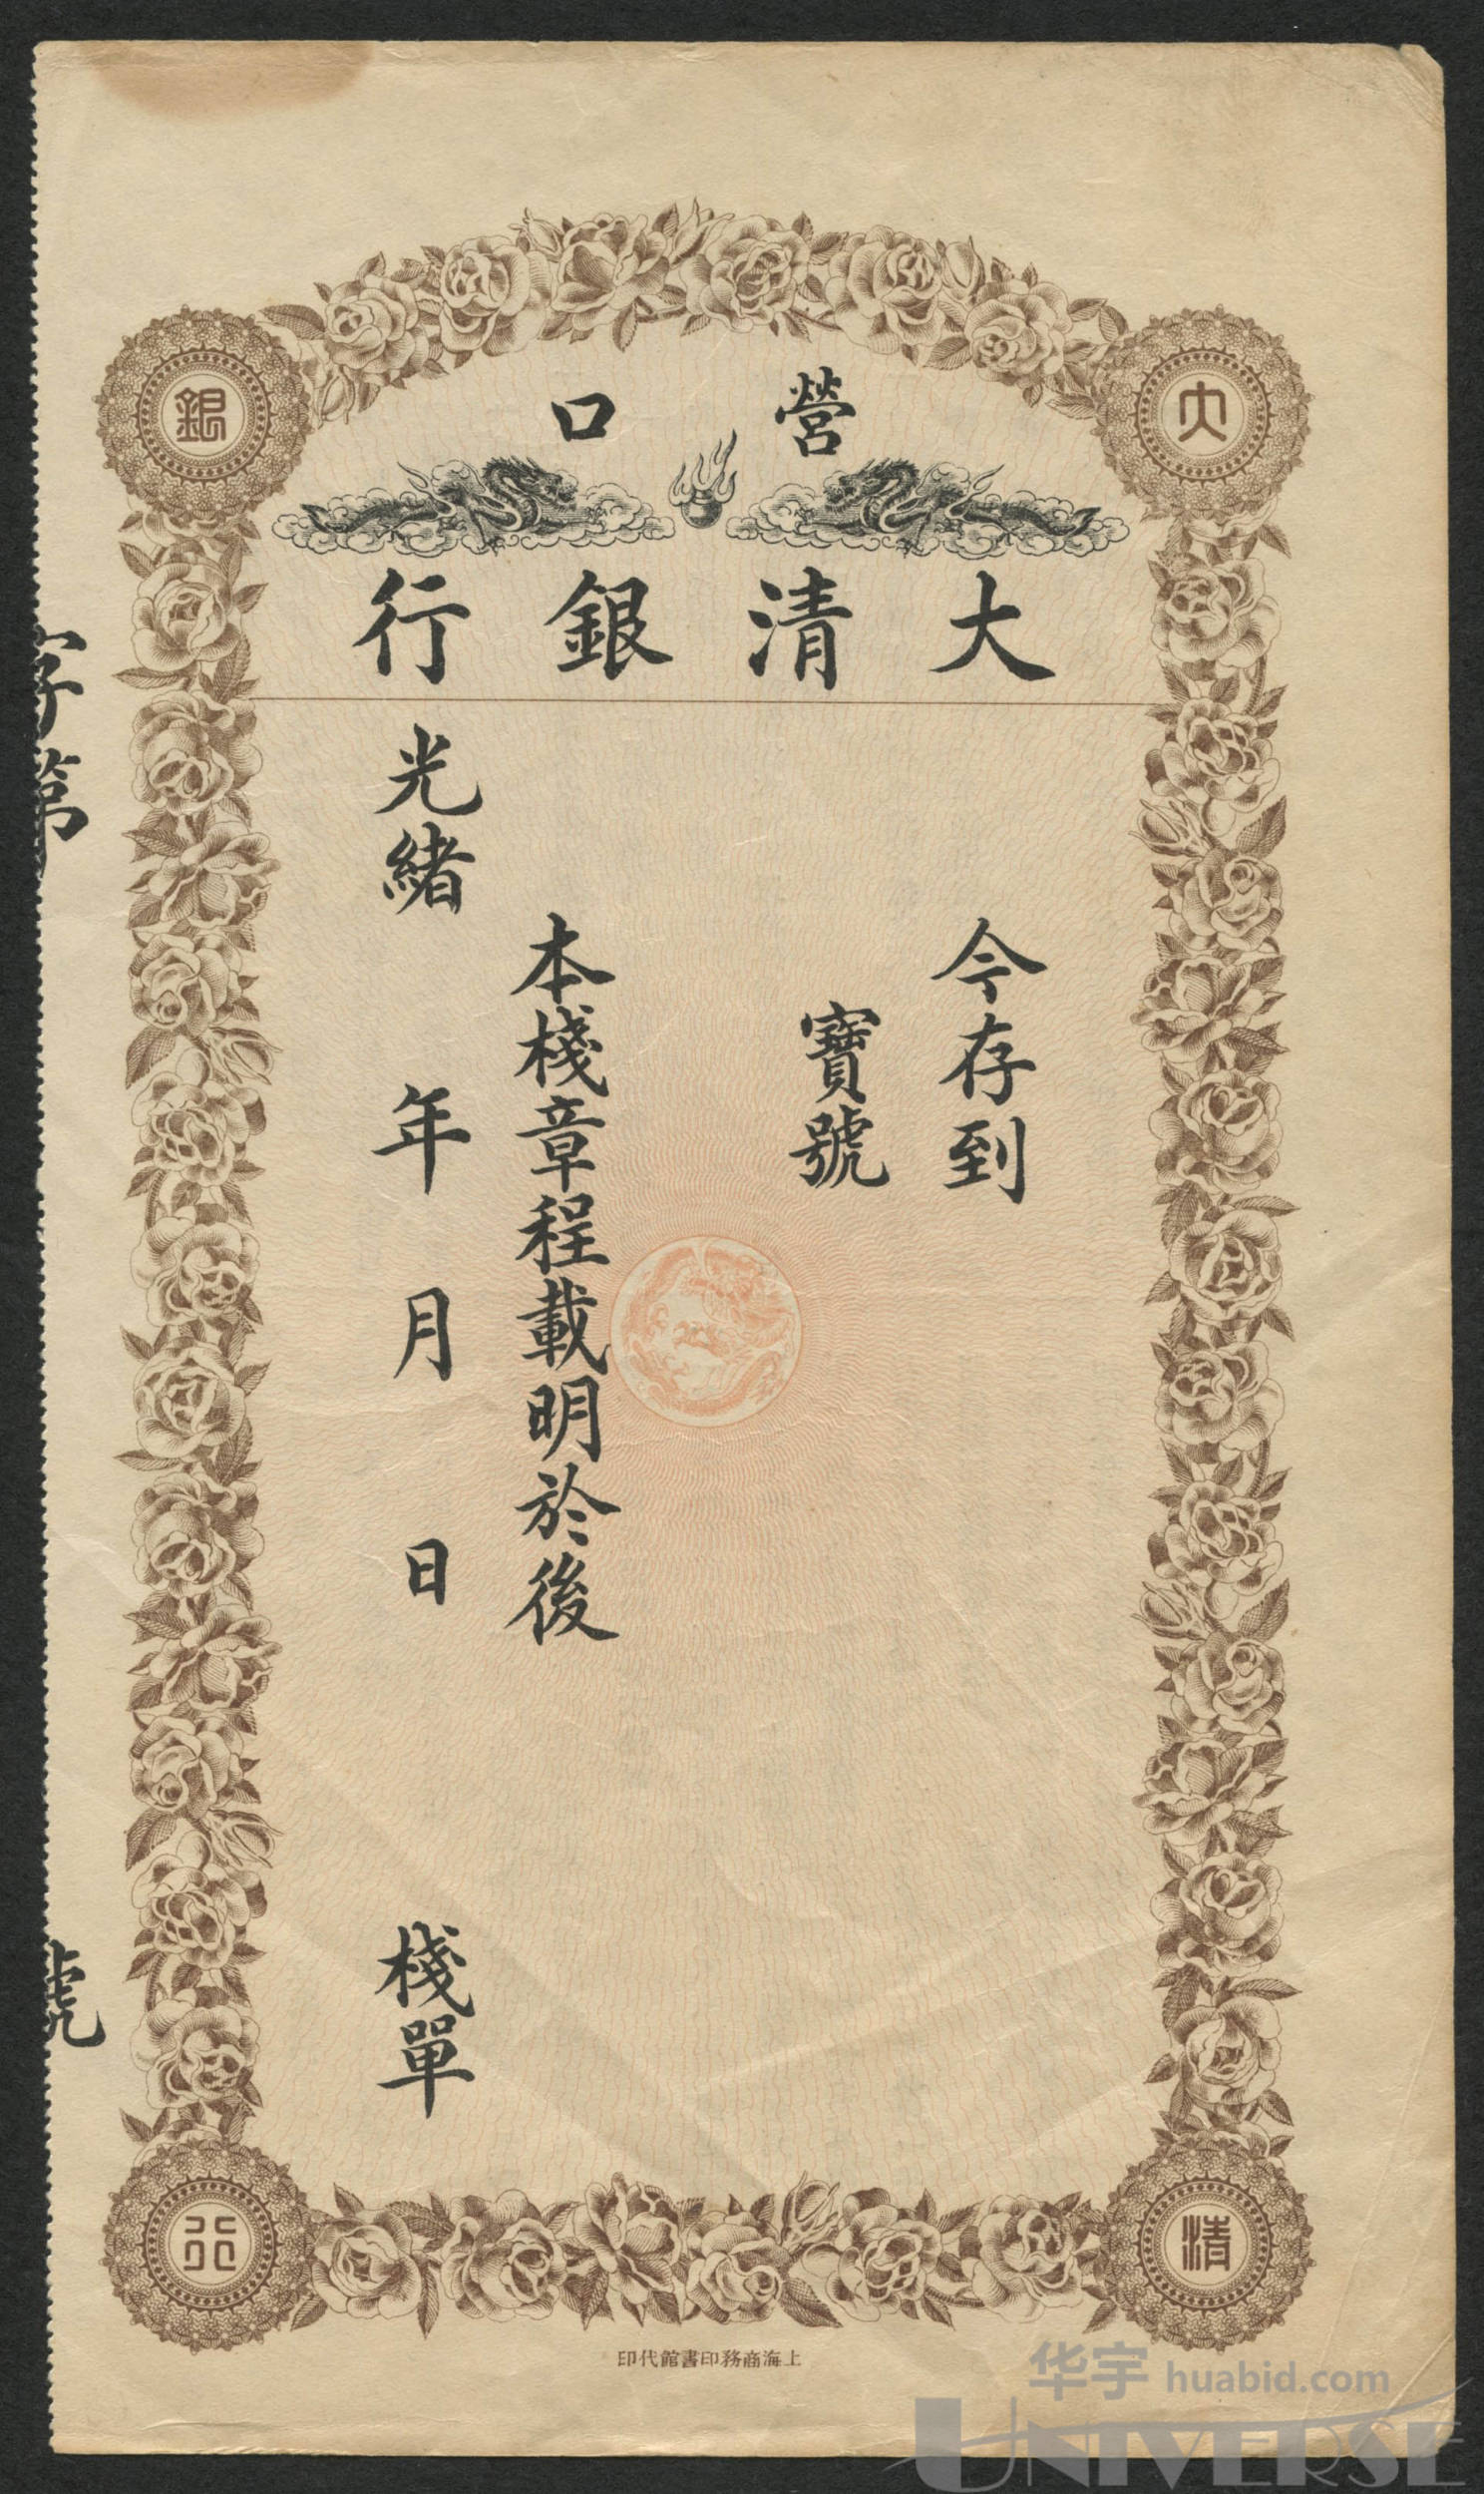 營口
大清銀行
今存到
寶號
本棧章程載明於後
光緒 年 月 日
棧單
字第 號
大
清
銀
行
上海商務印書館代印
华宇 huabid.com
UNIVERSE